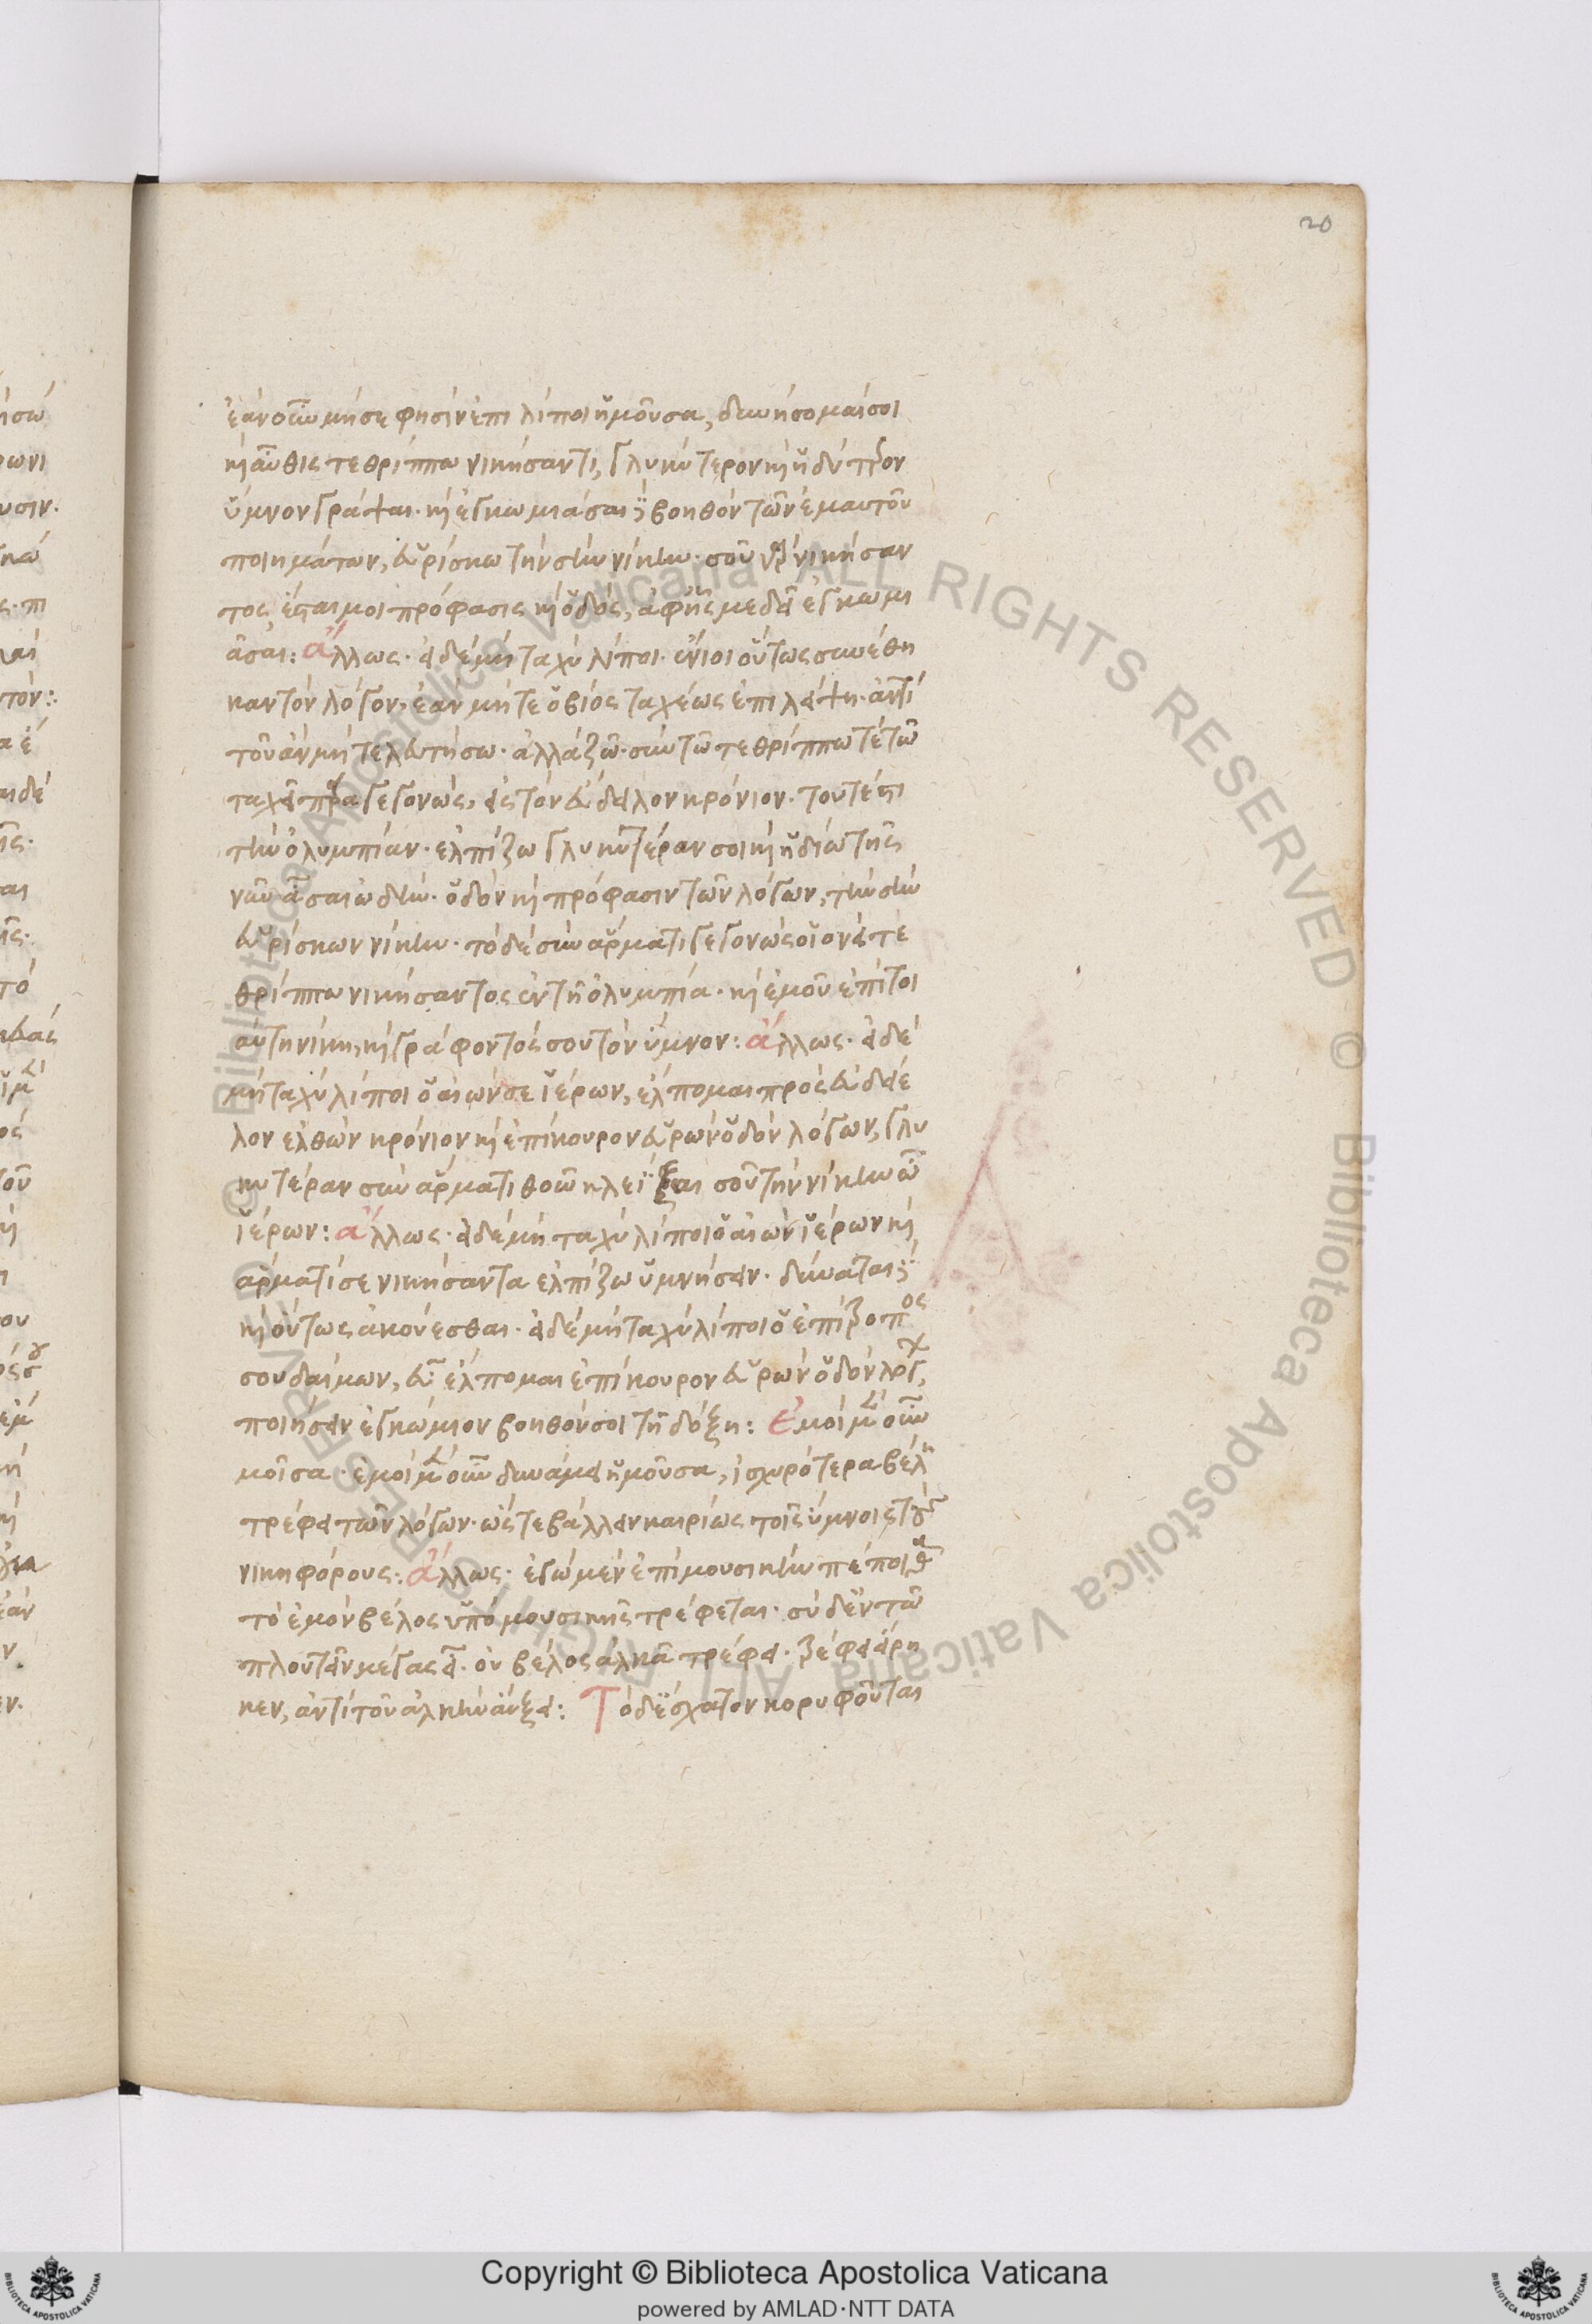 20
ἐὰν οὖν μή σε φησὶν ἐπιλίποι ἡ μοῦσα, δυνήσομαί σοι
καὶ αὖθις τεθρίππω νικήσαντι, γλυκύτερον καὶ ἡδύτερον
ὕμνον γράψαι. καὶ ἐγκωμιάσαι· βοηθὸν τῶν ἐμαυτοῦ
ποιημάτων, εὑρίσκω τὴν σὴν νίκην. σοῦ γὰρ νικήσαν
τος, ἔσται μοι πρόφασις καὶ ὁδός, ἀφ' ἧς με δεῖ ἐγκωμι
ᾶσαι: ἄλλως. εἰ δὲ μὴ ταχὺ λίποι. ἔνιοι οὕτως συνέθη
καν τὸν λόγον, ἐὰν μή τε ὁ βίος ταχέως ἐπιλείψη. ἀντὶ
τοῦ ἂν μὴ τελευτήσω. ἀλλὰ ζῶ. σὺν τῶ τεθρίππω τέ τῶ
ταχεῖ παραγεγονὼς, εἰς τὸν εὐδείελον κρόνιον. τουτέστι
τὴν ὀλυμπίαν. ἐλπίζω γλυκυτέραν σοι καὶ ἡδίω τῆς
νῦν ᾆσαι ὠδὴν. ὁδὸν καὶ πρόφασιν τῶν λόγων, τὴν σὴν
εὑρίσκων νίκην. τὸ δὲ σὺν ἅρματι γεγονὼς οἱονεὶ τε
θρίππω νικήσαντος ἐν τῆ ὀλυμπία. καὶ ἐμοῦ ἐπὶ τοι
αύτη νίκη, καὶ γράφοντός σου τὸν ὕμνον: ἄλλως. εἰ δὲ
μὴ ταχὺ λίποι ὁ αἰών σε ἱέρων, ἔλπομαι πρὸς εὐδείε
λον ἐλθὼν κρόνιον καὶ ἐπίκουρον εὑρὼν ὁδὸν λόγων, γλυ
κυτέραν σὺν ἅρματι θοῶ κλεΐξαι σοῦ τὴν νίκην ὦ
ἱέρων: ἄλλως. εἰ δὲ μὴ ταχὺ λίποι ὁ αἰὼν ἱέρων καὶ
ἅρματί σε νικήσαντα ἐλπίζω ὑμνήσειν. δύναται
καὶ οὕτως ἀκούεσθαι. εἰ δὲ μὴ ταχὺ λίποι ὁ ἐπίτροπος
σου δαίμων, εὖ ἔλπομαι ἐπίκουρον εὑρὼν ὁδὸν λόγων,
ποιήσειν ἐγκώμιον βοηθοῦν σοι τῆ δόξη: Ἐμοὶ μὲν οὖν
μοῖσα. ἐμοὶ μὲν οὖν δυνάμει ἡ μοῦσα, ἰσχυρότερα βέλη
τρέφει τῶν λόγων. ὥστε βάλλειν καιρίως τοῖς ὕμνοις τοὺς
νικηφόρους: ἄλλως. ἐγὼ μὲν ἐπὶ μουσικὴν πέποιθα
τὸ ἐμὸν βέλος ὑπὸ μουσικῆς τρέφεται. σὺ δ' ἐν τῶ
πλουτεῖν μέγας εἶ. ὃν βέλος ἀλκᾶ τρέφει. τρέφει εἴρη
κεν, ἀντὶ τοῦ ἀλκὴν αὔξει: Τὸ δ' ἔσχατον κορυφοῦται
Copyright © Biblioteca Apostolica Vaticana
powered by AMLAD·NTT DATA